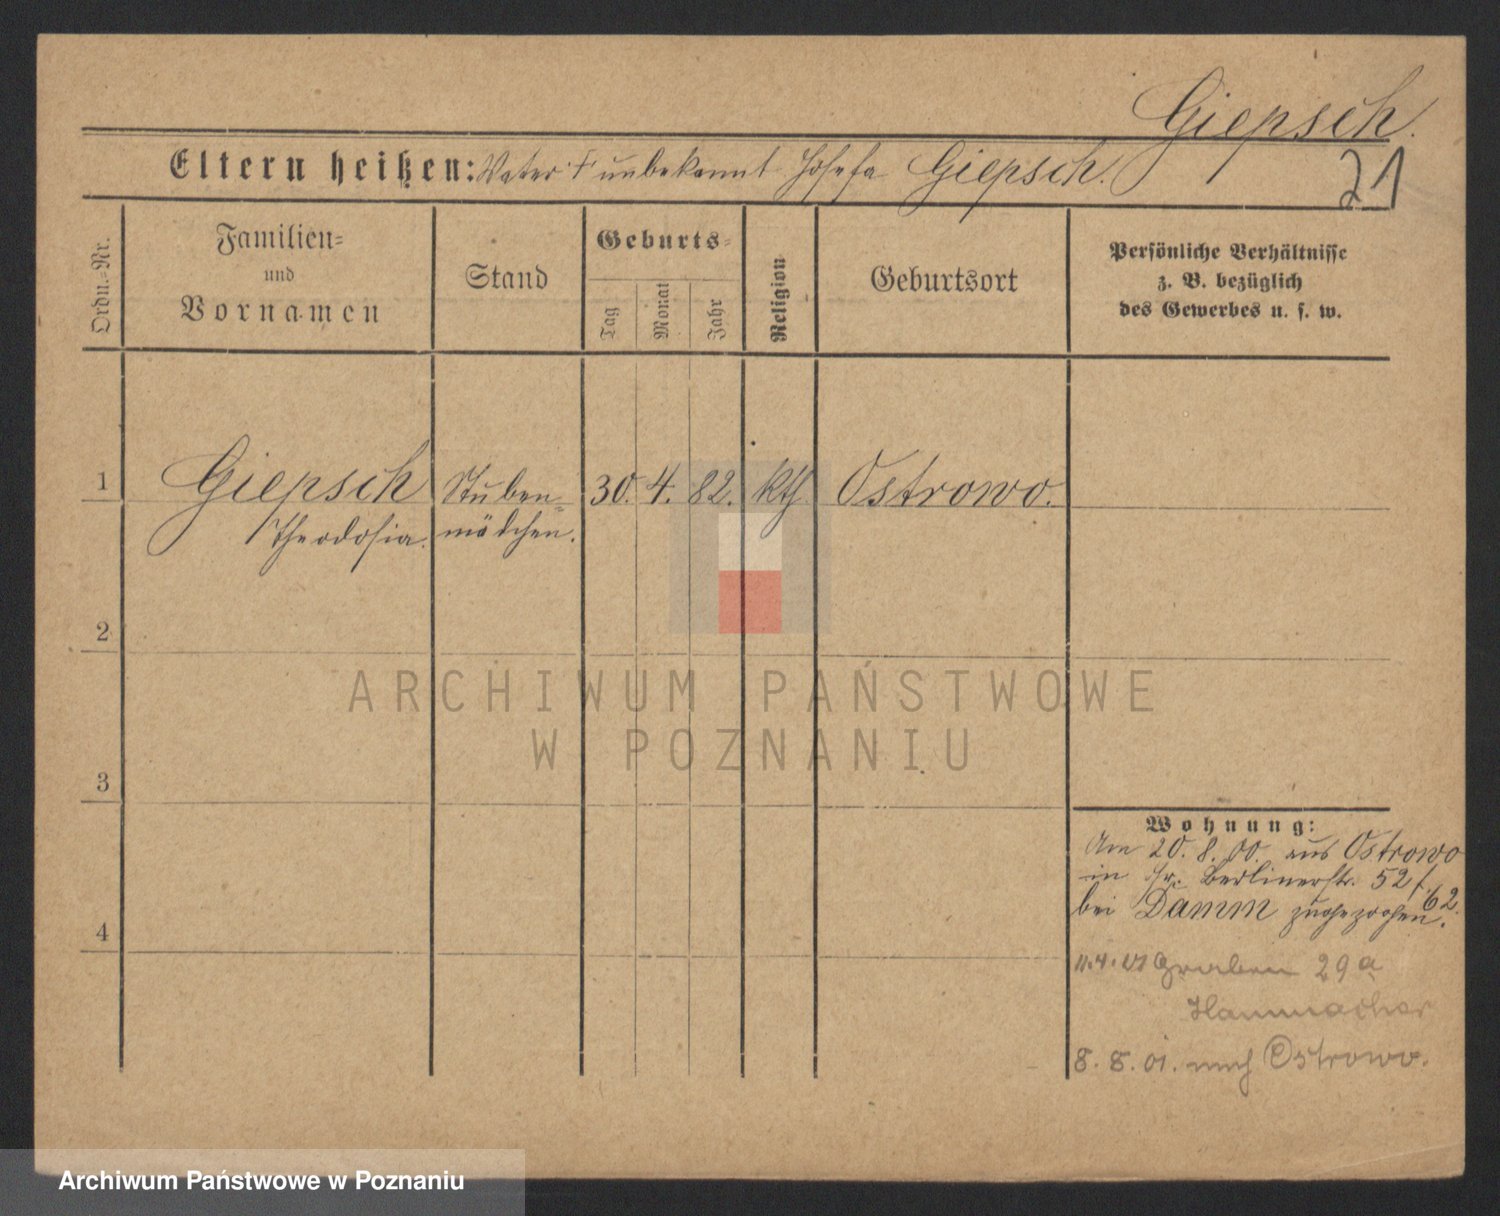 Giepsch.
21
Eltern heißen: Vater † unbekannt Josefa Giepsch.
Ordn.-Nr.
Familien-
und
Vornamen
Stand
Geburts-
Tag
Monat
Jahr
Religion
Geburtsort
Persönliche Verhältnisse
z. B. bezüglich
des Gewerbes u. s. w.
1
Giepsch
Theodosia.
Stuben-
mädchen.
30. 4. 82.
kth
Ostrowo.
2
3
4
Wohnung:
Am 20. 8. 00. aus Ostrowo
in Berlinerstr. 52/62.
bei Damm zugezogen.
11.4.01 Graben 29a
Hammacher
8. 8. 01. nach Ostrowo.
ARCHIWUM PAŃSTWOWE
W POZNANIU
Archiwum Państwowe w Poznaniu